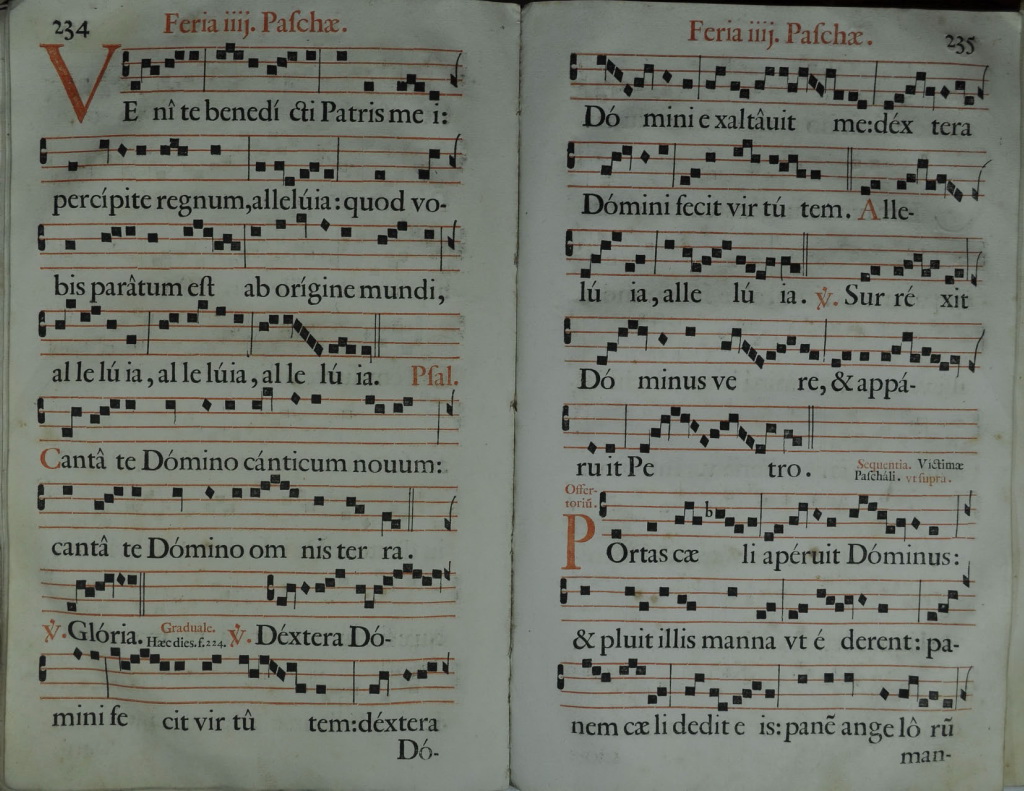 234 Feria iiij. Paſchæ.
VE nî te benedí cti Patris me i:
percípite regnum, allelúia: quod vo-
bis parâtum eſt ab orígine mundi,
al le lú ia, al le lúia, al le lú ia. Pſal.
Cantâ te Dómino cánticum nouum:
cantâ te Dómino om nis ter ra.
℣. Glória. Graduale. Hæc dies. f. 224. ℣. Déxtera Dó-
mini fe cit vir tû tem: déxtera
Dó-
Feria iiij. Paſchæ. 235
Dó mini e xaltâuit me: déx tera
Dómini fecit vir tú tem. Alle-
lú ia, alle lú ia. ℣. Sur ré xit
Dó minus ve re, & appá-
ru it Pe tro. Sequentia. Victimæ Paſcháli. vt ſupra.
Offer-
toriũ.
POrtas cæ li apéruit Dóminus:
& pluit illis manna vt é derent: pa-
nem cæ li dedit e is: panẽ ange lô rũ
man-